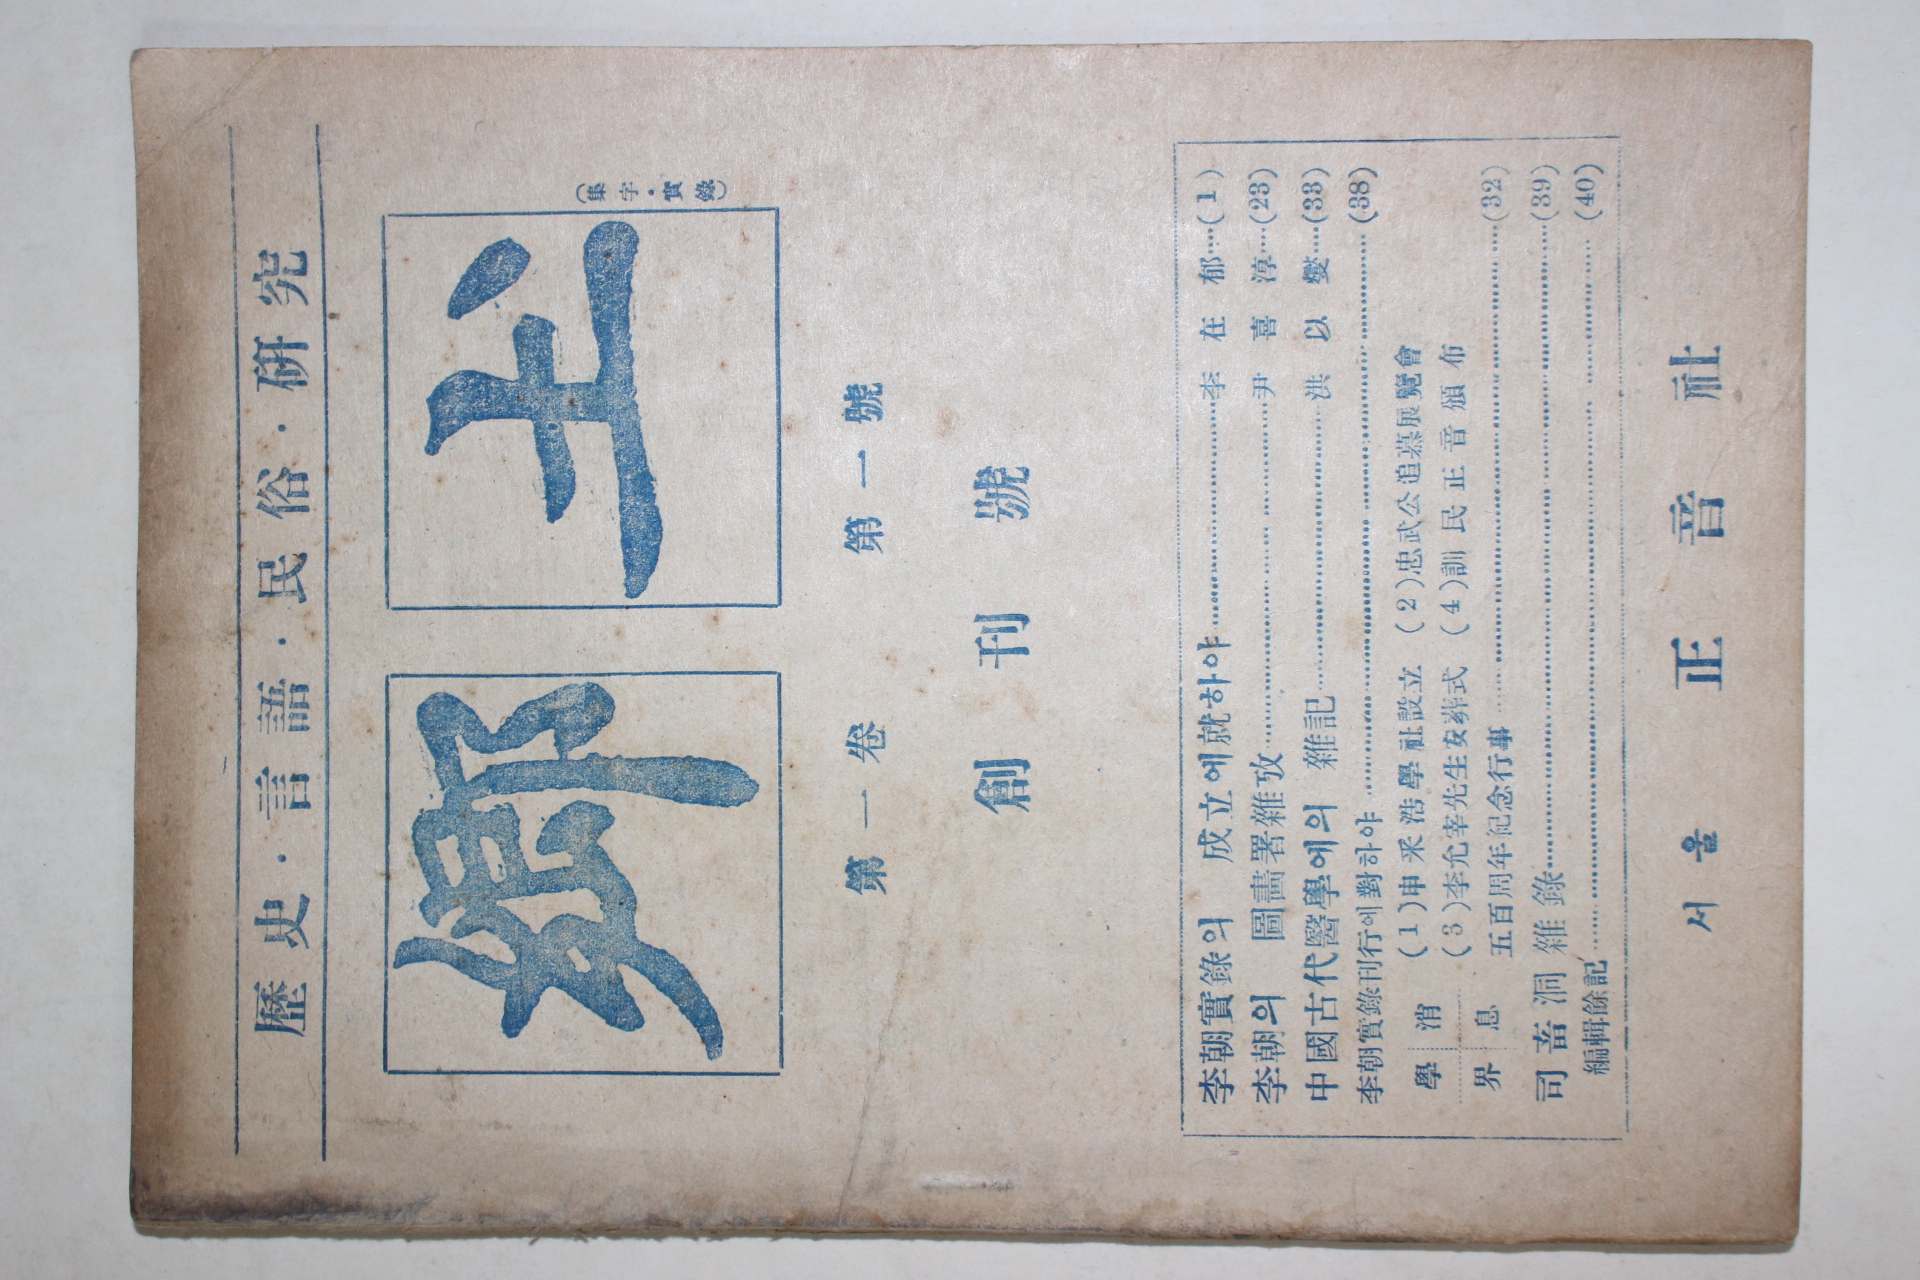 歷史·言語·民俗·研究
鄕土
(集字·實錄)
第一卷 第一號
創刊號
李朝實錄의 成立에就하야……李在郁…(1)
李朝의 圖畵署雜攷……尹喜淳…(23)
中國古代醫學에의 雜記……洪以燮…(33)
李朝實錄刊行에對하야……(38)
學界消息
(1)申采浩學社設立 (2)忠武公追慕展覽會
(3)李允宰先生安葬式 (4)訓民正音頒布
五百周年紀念行事……(32)
司畜洞雜錄……(39)
編輯餘記……(40)
서울 正音社